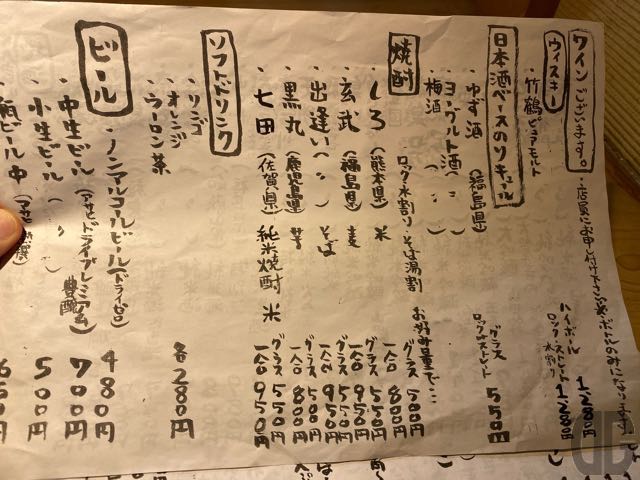 ワインございます。・店員にお申し付け下さい ボトルのみになります
ウィスキー
・竹鶴ピュアモルト
ハイボール 1,280円
ロック・ストレート 水割り 1,280円
日本酒ベースのリキュール
・ゆず酒 (福島県) グラス 550円
・ヨーグルト酒(〃) ロック・ストレート
・梅酒 (〃)
焼酎 ロック 水割り そば湯割 お好み量で…
・しろ (熊本県) 米 グラス 500円
一合 800円
・玄武 (福島県) 麦 グラス 550円
一合 950円
・出逢い(〃) そば グラス 500円
一合 950円
・黒丸 (鹿児島県) 芋 グラス 500円
一合 800円
・七田 (佐賀県) 純米焼酎 米 グラス 550円
一合 950円
ソフトドリンク
・リンゴ
・オレンジ
・ウーロン茶 各280円
ビール
・ノンアルコールビール(ドライゼロ) 480円
・中生ビール (アサヒドライプレミアム豊醸) 700円
・小生ビール (〃) 500円
瓶ビール 中